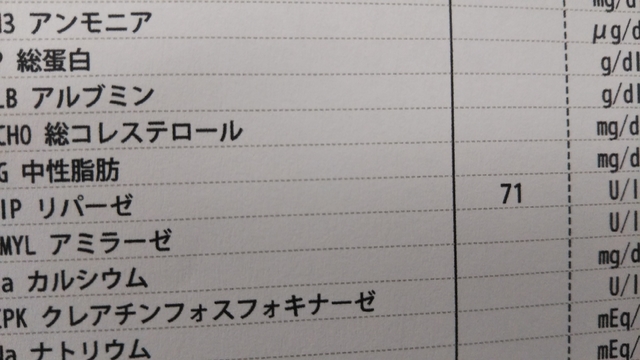 アンモニア μg/d
総蛋白 g/dl
アルブミン g/dl
CHO 総コレステロール mg/d
中性脂肪 mg/d
リパーゼ 71 U/l
アミラーゼ U/l
カルシウム mg/d
CPK クレアチンフォスフォキナーゼ U/l
ナトリウム mEq/
mEq/